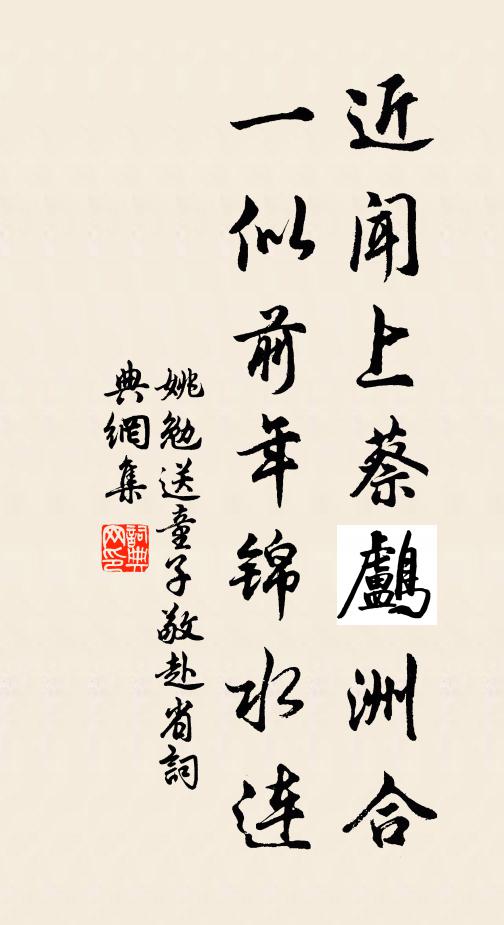 近闻上蔡鸕洲合
一似前年锦水连
姚勉送童子敬赴省詞
典網集
詞典網印